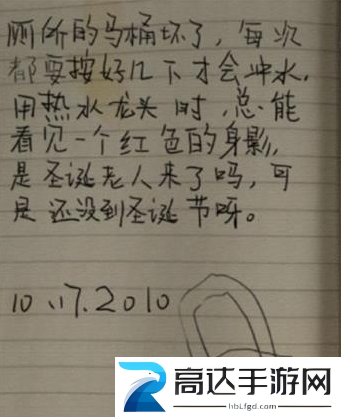 厕所的马桶坏了，每次
都要按好几下才会冲水，
用热水龙头时，总能
看见一个红色的身影，
是圣诞老人来了吗，可
是还没到圣诞节呀。
10.17.2010
高达手游网
hbLfgd.com